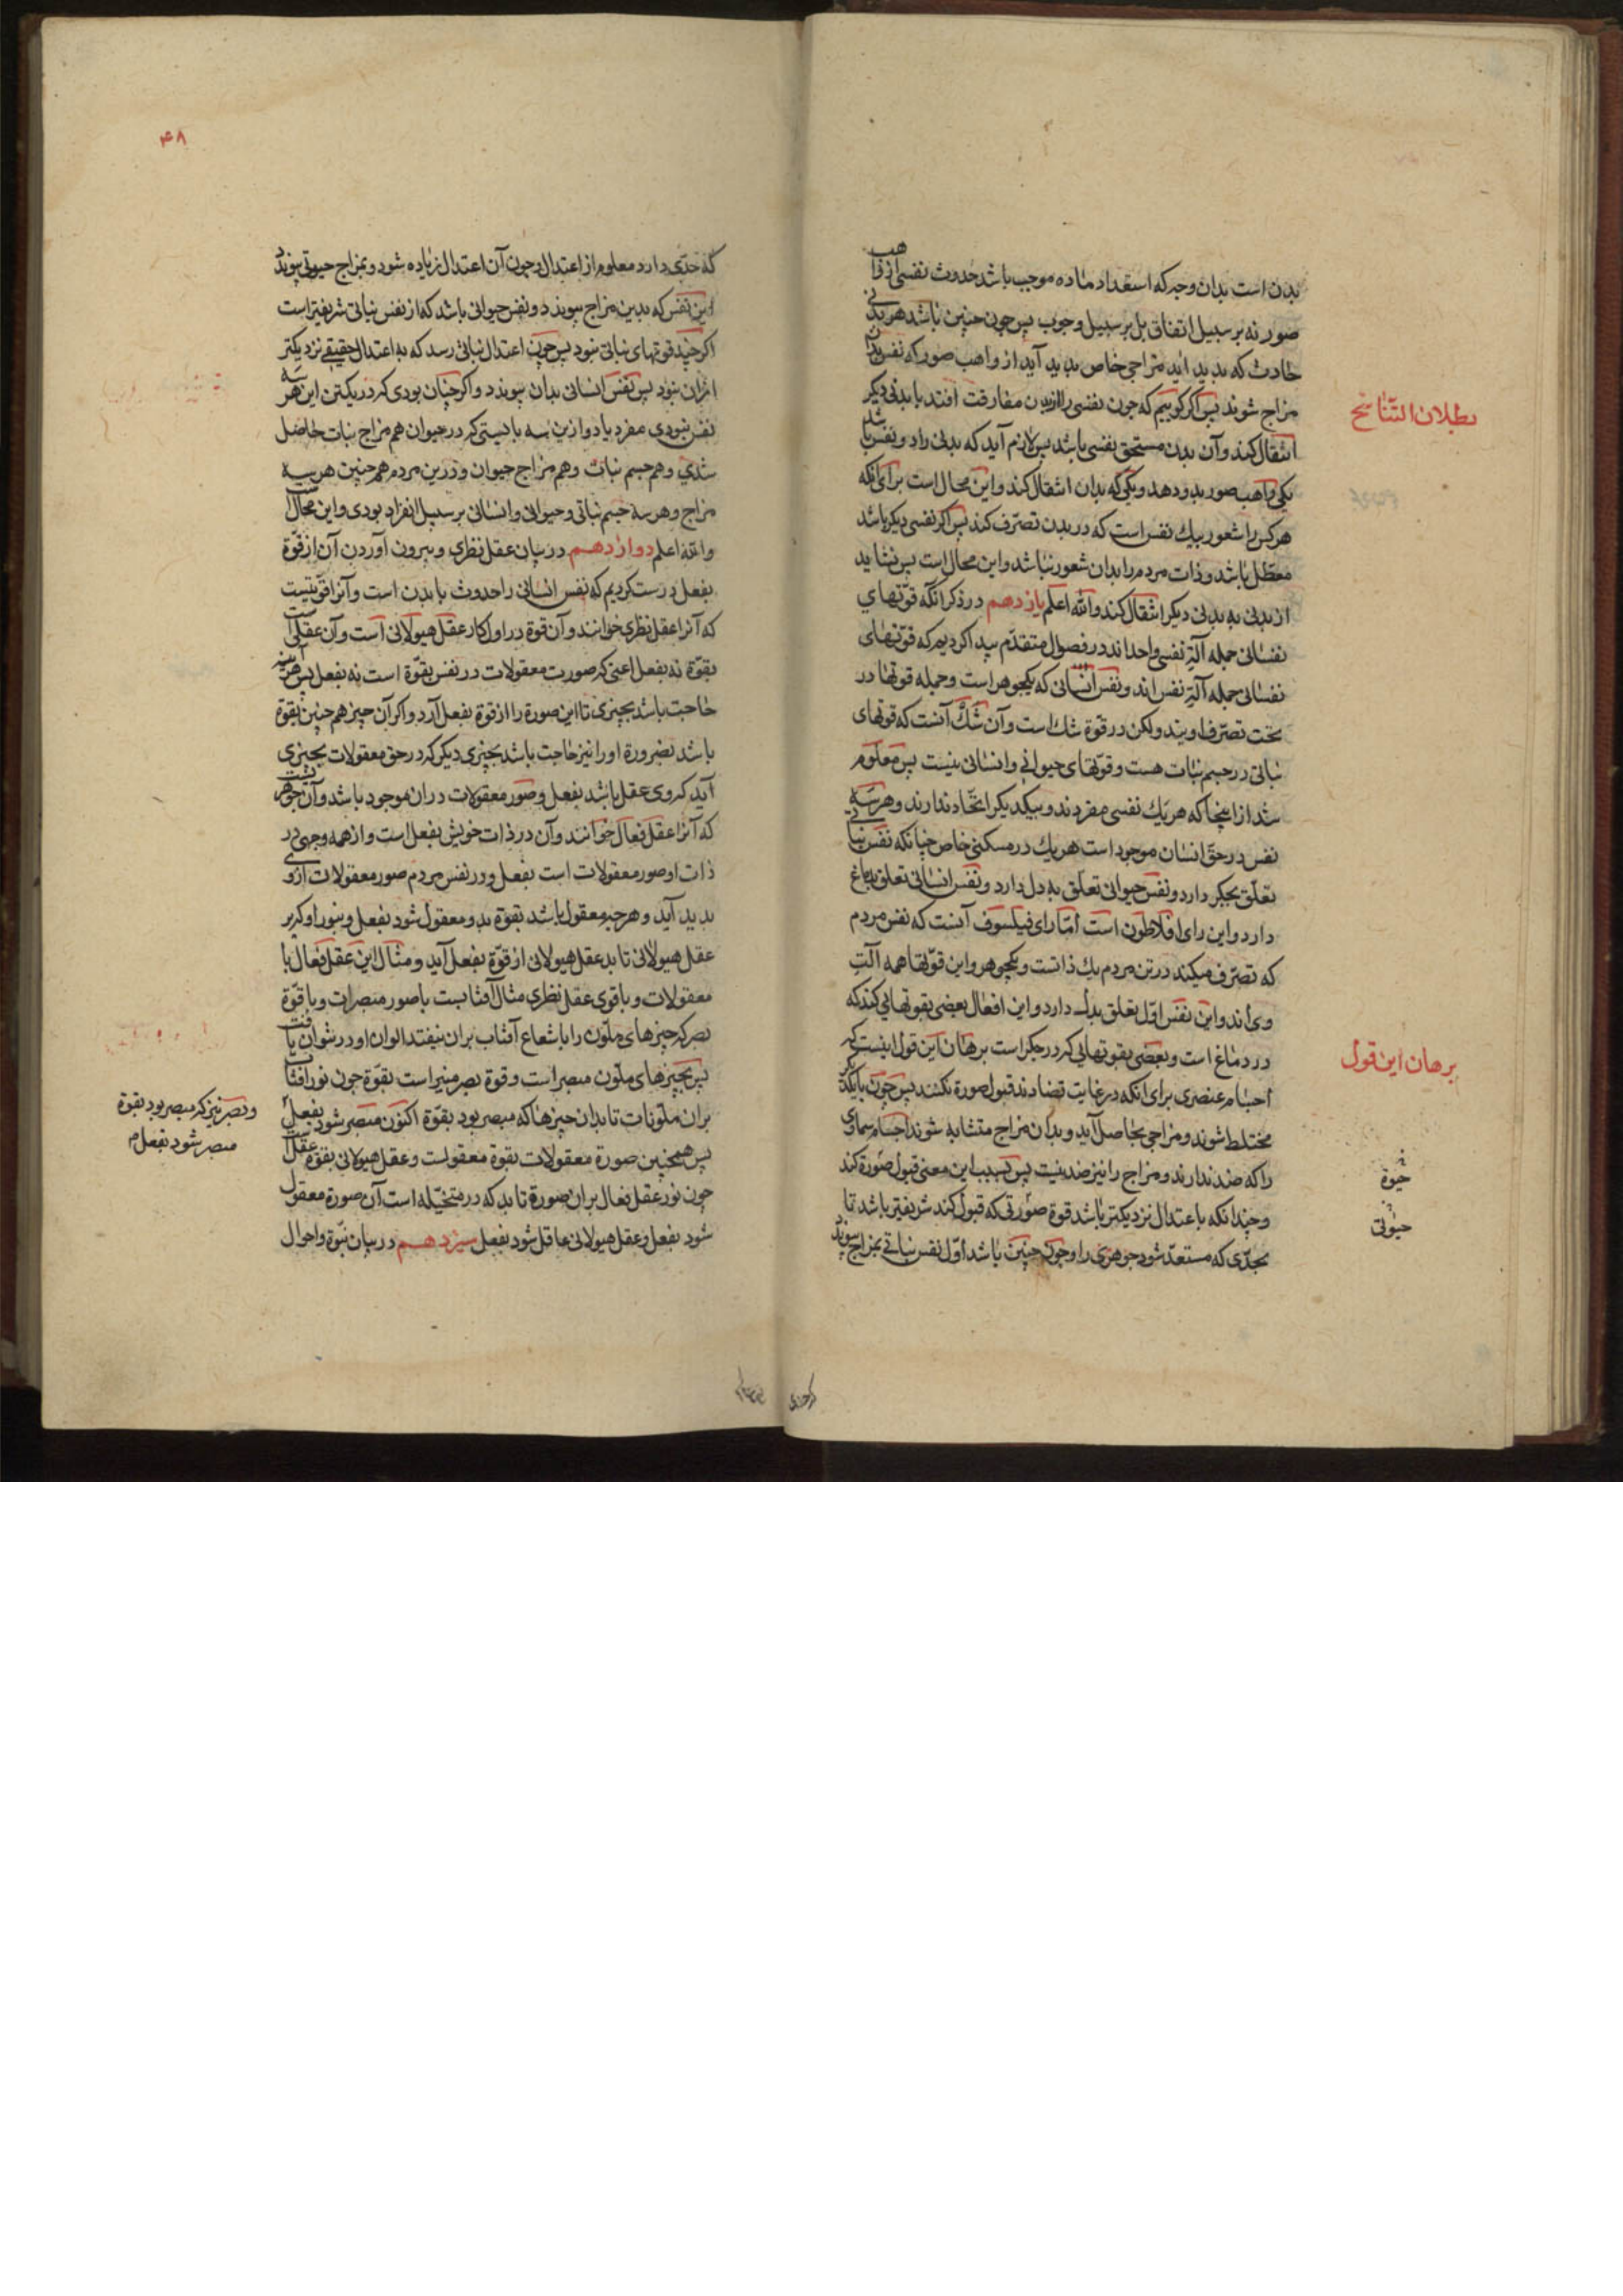 بدن است بدان وجه که استعداد ماده موجب باشد حدوث نفسی از واهب
صور نه بر سبیل اتفاق بل بر سبیل وجوب پس چون چنین باشد هر بدنی
حادث که بدید آید مزاجی خاص بدید آید از واهب صور که نفس بدان
مزاج شوند پس اگر گوییم که چون نفسی را از بدن مفارقت افتد با بدنی دیگر
انتقال کند و آن بدن مستحق نفسی باشد پس لازم آید که بدنی را دو نفس باشد
یکی واهب صور بدو دهد و یکی که بدان انتقال کند و این محال است برای آنکه
هر کس را شعور بیک نفس است که در بدن تصرّف کند پس اگر نفسی دیگر باشد
معطّل باشد و ذات مردم را بدان شعور نباشد و این محال است پس نشاید
از بدنی به بدنی دیگر انتقال کند والله اعلم یازدهم در ذکر آنکه قوّتهای
نفسانی جمله آلة نفسی واحد اند در فصول متقدّم پیدا کردیم که قوّتهای
نفسانی جمله آلة نفس اند و نفس انسانی که یکجوهر است و جمله قوتها در
تحت تصرّف اویند ولکن در قوّة شک است و آن شکّ آنست که قوتهای
نباتی در جسم نبات هست و قوّتهای حیوانی و انسانی نیست پس معلوم
شد از اینجا که هر یک نفسی مفردند و بیکدیگر اتّحاد ندارند و هر سه
نفس در حقّ انسان موجود است هر یک در مسکنی خاص چنانکه نفس نباتی
تعلّق بجگر دارد و نفس حیوانی تعلّق به دل دارد و نفس انسانی تعلق بدماغ
دارد و این رای افلاطون است امّا رای فیلسوف آنست که نفس مردم
که تصرّف میکند در تن مردم یک ذاتست و یکجوهر و این قوّتها همه آلت
وی اند و این نفس اوّل تعلق بدل دارد و این افعال بعضی بقوتهایی کند که
در دماغ است و بعضی بقوتهایی که در جگر است برهان این قول اینست که
اجسام عنصری برای آنکه در غایت تضادند قبول صورة نکنند پس چون با یکدیگر
مختلط شوند و مزاجی بحاصل آید و بدان مزاج متشابه شوند اجسام سماوی
را که ضد ندارند و مزاج را نیز ضد نیست پس بسبب این معنی قبول صورة کند
و چندانکه با اعتدال نزدیکتر باشد قوة صورتی که قبول کند شریفتر باشد تا
بحدّی که مستعدّ شود جوهری را و چون چنین باشد اوّل نفس نباتی بمزاج پیوندد
بطلان التّناسخ
برهان این قول
حیوة
حیوتی
۴۸
که حدّی دارد معلوم از اعتدال و چون آن اعتدال زیاده شود و بمزاج حیوتی پیوندد
این نفس که بدین مزاج پیوندد و نفس حیوانی باشد که از نفس نباتی شریفتر است
اگر چند قوتهای نباتی بود پس چون اعتدال نباتی رسد که به اعتدال حقیقی نزدیکتر
ازان نبود پس نفس انسانی بدان پیوندد و اگر چنان بودی که در یکتن این هر سه
نفس نبودی مفرد یا دو ازین سه بایستی که در حیوان هم مزاج نبات حاصل
شدی و هم جسم نبات و هم مزاج حیوان و در این مردم همچنین هر سه
مزاج و هر سه جسم نباتی و حیوانی و انسانی بر سبیل انفراد بودی و این محال است
والله اعلم دوازدهم در بیان عقل نظری و بیرون آوردن آن از قوّة
بفعل درست کردیم که نفس انسانی را حدوث با بدن است و آنرا قوّتیست
که آنرا عقل نظری خوانند و آن قوة در اول کار عقل هیولانی است و آن عقلی است
بقوّة نه بفعل اعنی که صورت معقولات در نفس بقوّة است نه بفعل پس هرآینه
حاجت باشد بچیزی تا این صورة را از قوة بفعل آرد و اگر آن چیز هم چنین بقوة
باشد بضرورة او را نیز حاجت باشد بچیزی دیگر که در حق معقولات بچیزی
آید که وی عقل باشد بفعل و صور معقولات دران موجود باشد و آن جوهریست
که آنرا عقل فعال خوانند و آن در ذات خویش بفعل است و از همه وجهی در
ذات او صور معقولات است بفعل و در نفس مردم صور معقولات از وی
بدید آید و هر چه معقول باشد بقوة بدو معقول شود بفعل و بنور او که بر
عقل هیولانی تابد عقل هیولانی از قوّة بفعل آید و مثال این عقل فعال با
معقولات و با قوی عقل نظری مثال آفتابست با صور مبصرات و با قوّة
بصر که چیزهای ملّون را با شعاع آفتاب بران نیفتد الوان او در نتوان یافت
پس چیزهای ملّون مبصر است و قوة بصر مبصر است بقوّة چون نور آفتاب
بران ملّونات تابد آن چیزها که مبصر بود بقوّة اکنون مبصر شود بفعل
پس همچنین صورة معقولات بقوة معقولست و عقل هیولانی بقوة عقل
چون نور عقل فعال بران صورة تابد که در متخیّله است آن صورة معقول
شود بفعل و عقل هیولانی عاقل شود بفعل سیزدهم در بیان نبّوة و احوال
و بصر نیز که مبصر بود بقوة
مبصر شود بفعل م